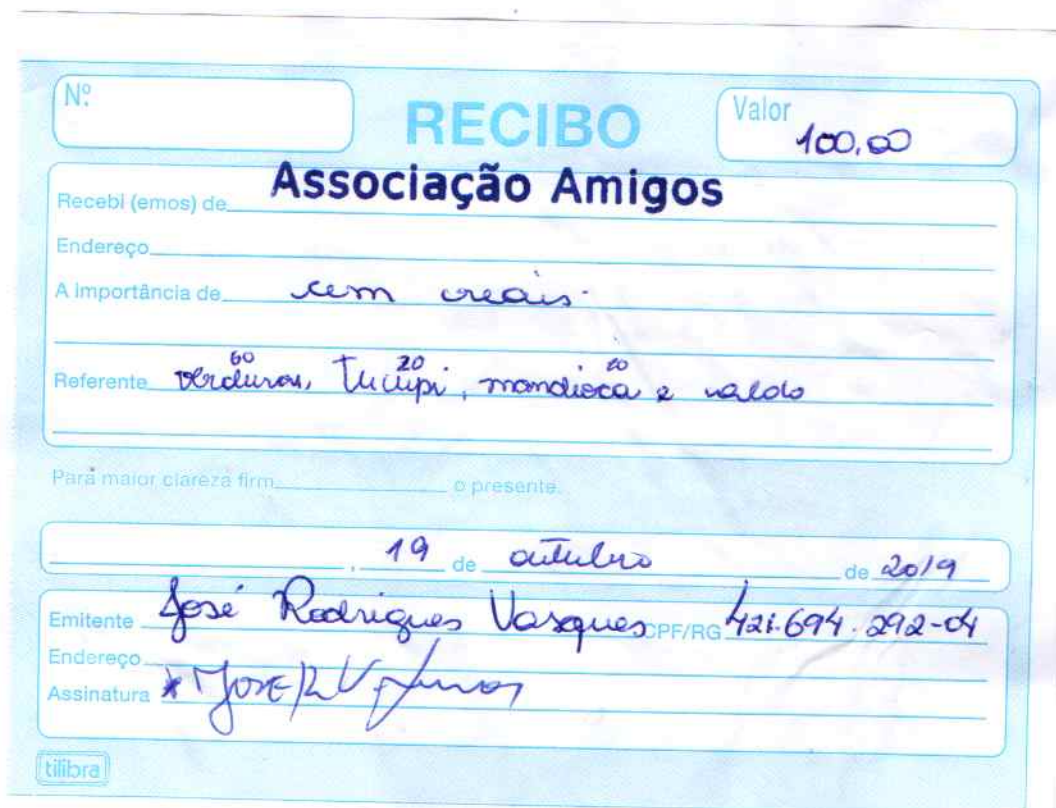 Nº
RECIBO
Valor
100,00
Recebi (emos) de Associação Amigos
Endereço
A importância de cem reais.
60 20 20
Referente verduras, Tucupi, mandioca e caldo
Para maior clareza firm o presente.
, 19 de outubro de 2019
Emitente José Rodrigues Vasques CPF/RG 421.694.292-04
Endereço
Assinatura
tilibra